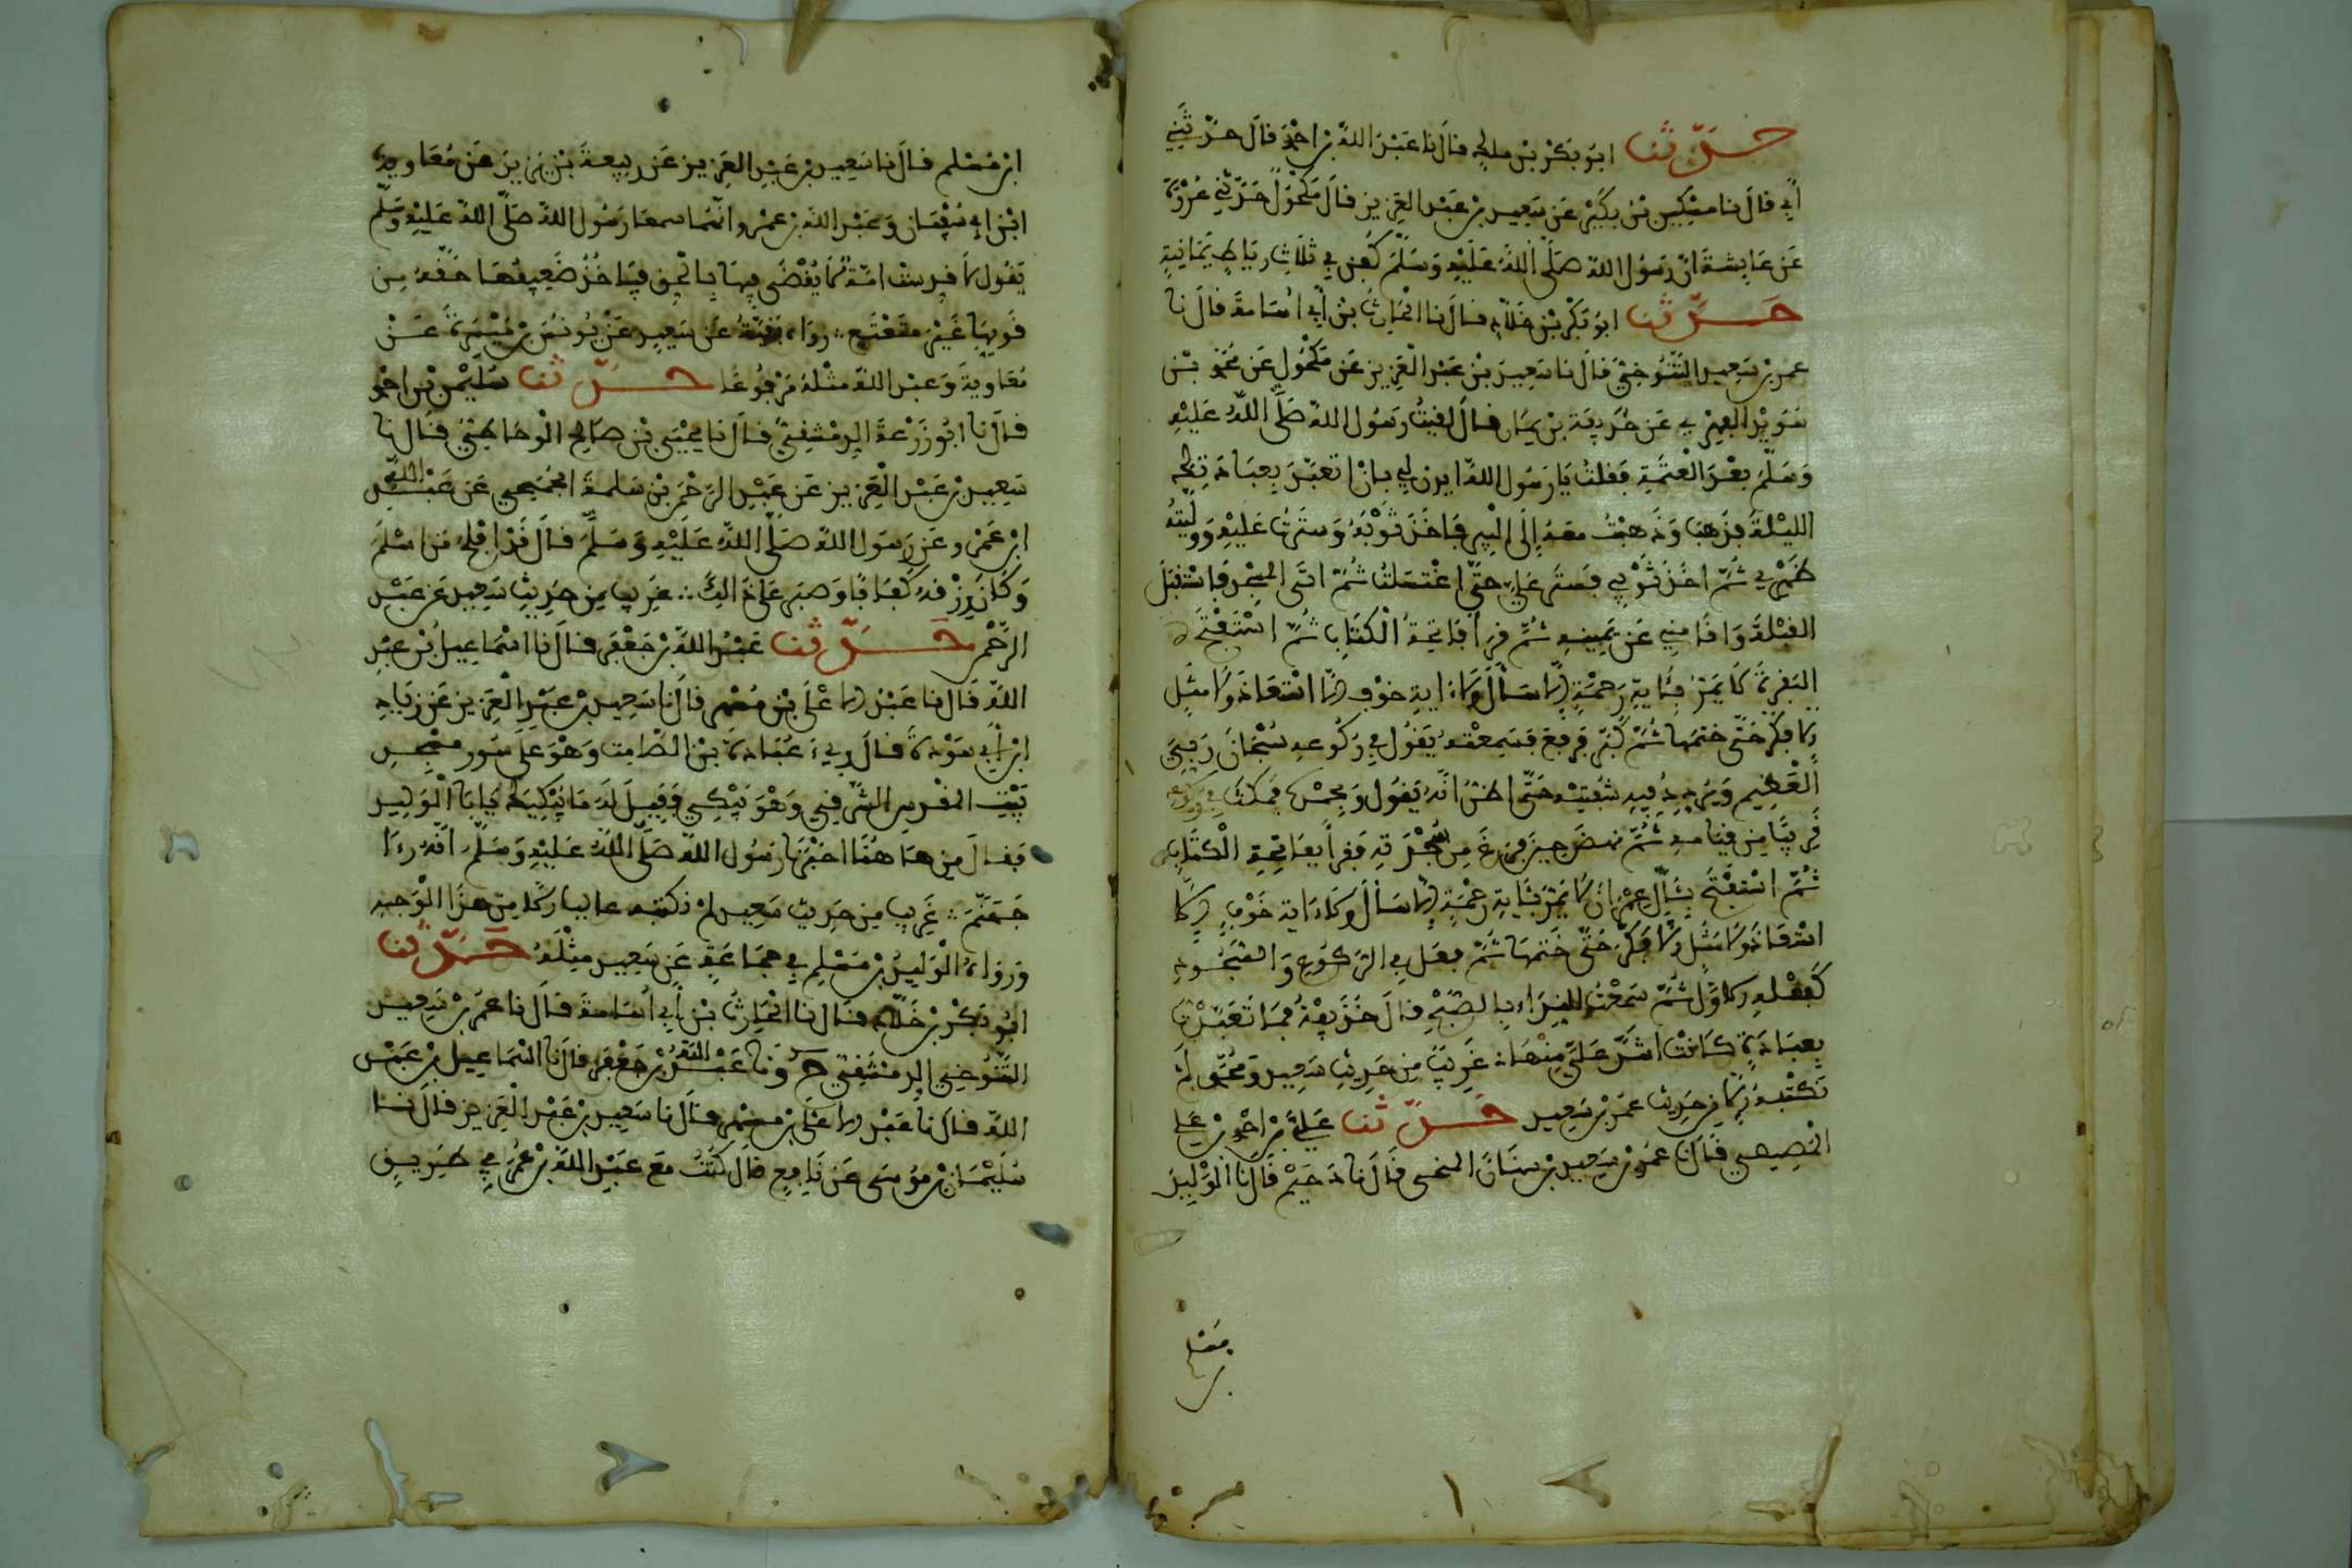 حدثنا ابو بكر بن ملك قال نا عبد الله بن احمد قال حدثني
أبي قال نا مسكين بن بكير عن سعيد بن عبد العزيز قال مكحول حدثني عروة
عن عايشة ان رسول الله صلى الله عليه وسلم كفن في ثلاث رياط يمانية
حدثنا ابو بكر بن خلاد قال نا الحارث بن أبي اسامة قال نا
عمر بن سعيد التنوخي قال نا سعيد بن عبد العزيز عن مكحول عن محمد بن
سويد الفهري عن حذيفة بن يمان قال لقيت رسول الله صلى الله عليه
وسلم بعد العتمة فقلت يا رسول الله ايذن لي بان اتعبد بعبادتك
الليلة فذهب وذهبت معه إلى البير فاخذ ثوبه وسترت عليه ووليته
ظهري ثم اخذ ثوبي فستر علي حتى اغتسلت ثم اتى المسجد فاستقبل
القبلة واقامني عن يمينه ثم قرأ فاتحة الكتاب ثم استفتح
البقرة لا يمر بئاية رحمة إلا سأل ولا ءاية خوف إلا استعاذ ولا مثل
إلا فكر حتى ختمها ثم كبر فركع فسمعته يقول في ركوعه سبحان ربي
العظيم ويردد فيه شفتيه حتى اظن انه يقول وبحمده فمكث في ركوعه
قريبا من قيامه ثم نهض حين فرغ من سجدته فقرأ بفاتحة الكتاب
ثم استفتح بئال عمران لا يمر بئاية رحمة إلا سأل ولا ءاية خوف إلا
استعاذ ولا مثل إلا فكر حتى ختمها ثم فعل في الركوع والسجود
كفعله الاول ثم سمعت النداء بالصبح قال حذيفة فما تعبدت
بعبادة كانت اشد علي منها غريب من حديث سعيد ومحمد لم
نكتبه إلا من حديث عمر بن سعيد حدثنا علي بن احمد بن علي
المصيصي قال نا عمر بن سعيد بن سنان المنبجي قال نا دحيم قال نا الوليد
ابن مسلم قال نا سعيد بن عبد العزيز عن ربيعة بن يزيد عن معاوية
ابن ابي سفيان وعبد الله بن عمرو انهما سمعا رسول الله صلى الله عليه وسلم
يقول لا قدست امة لا يقضى فيها بالحق فياخذ ضعيفها حقه من
قويها غير متعتع رواه بقية عن سعيد عن يونس بن ميسرة عن
معاوية وعبد الله مثله مرفوعا حدثنا سليمن بن احمد
قال نا ابو زرعة الدمشقي قال نا يحيى بن صالح الوحاظي قال نا
سعيد بن عبد العزيز عن عبد الرحمن بن سلمة الجمحي عن عبد الله
ابن عمرو عن رسول الله صلى الله عليه وسلم قال قد افلح من اسلم
وكان رزقه كفافا وصبر على ذالك غريب من حديث سعيد عن عبد
الرحمن حدثنا عبد الله بن جعفر قال نا اسماعيل بن عبد
الله قال نا عبد الاعلى بن مسهر قال نا سعيد بن عبد العزيز عن زياد
ابن أبي سودة قال ريء عبادة بن الصامت وهو على سور مسجد
بيت المقدس الشرقي وهو يبكي فقيل له ما يبكيك يا با الوليد
فقال من هاهنا اخبرنا رسول الله صلى الله عليه وسلم انه رءا
جهنم غريب من حديث سعيد لم نكتبه عاليا إلا من هذا الوجه
ورواه الوليد بن مسلم في جماعة عن سعيد مثله حدثنا
ابو بكر بن خلاد قال نا الحارث بن أبي اسامة قال نا عمر بن سعيد
التنوخي الدمشقي ح ونا عبد الله بن جعفر قال نا اسماعيل بن عبد
الله قال نا عبد الاعلى بن مسهر قال نا سعيد بن عبد العزيز قال نا
سليمان بن موسى عن نافع قال كنت مع عبد الله بن عمر في طريق